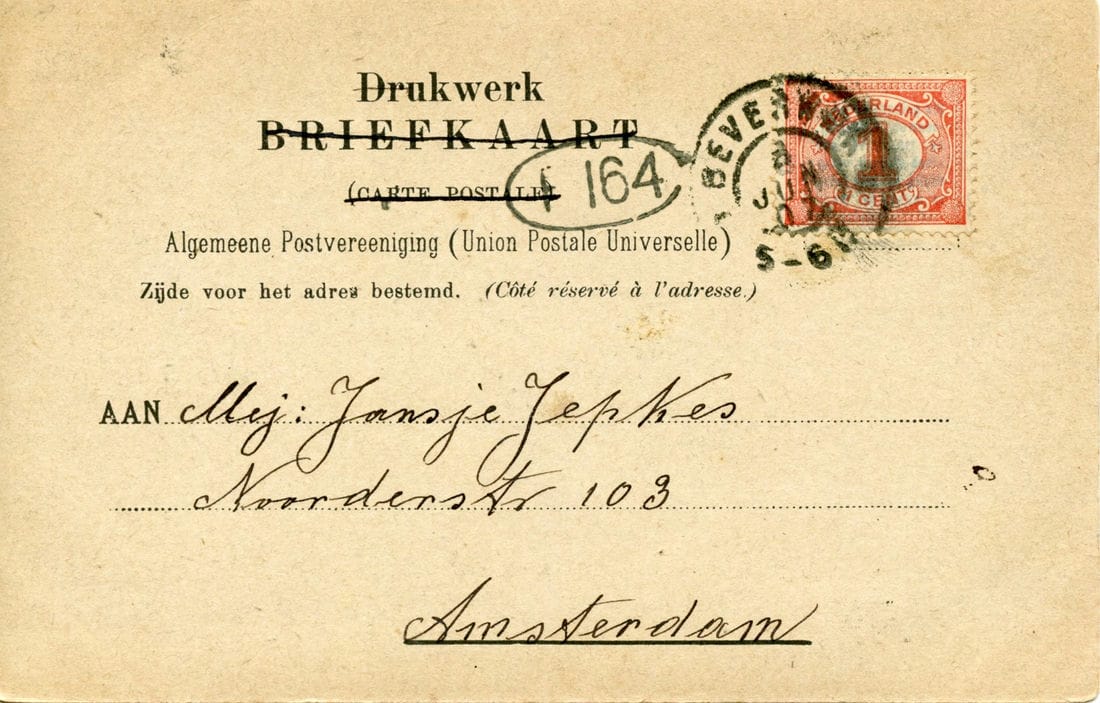 Drukwerk
BRIEFKAART
(CARTE POSTALE)
1 164
Algemeene Postvereeniging (Union Postale Universelle)
Zijde voor het adres bestemd. (Côté réservé à l'adresse.)
NEDERLAND
1
1 CENT
8
JUN
5-6N
AAN Mej: Jansje Jepkes
Noorderstr 103
Amsterdam